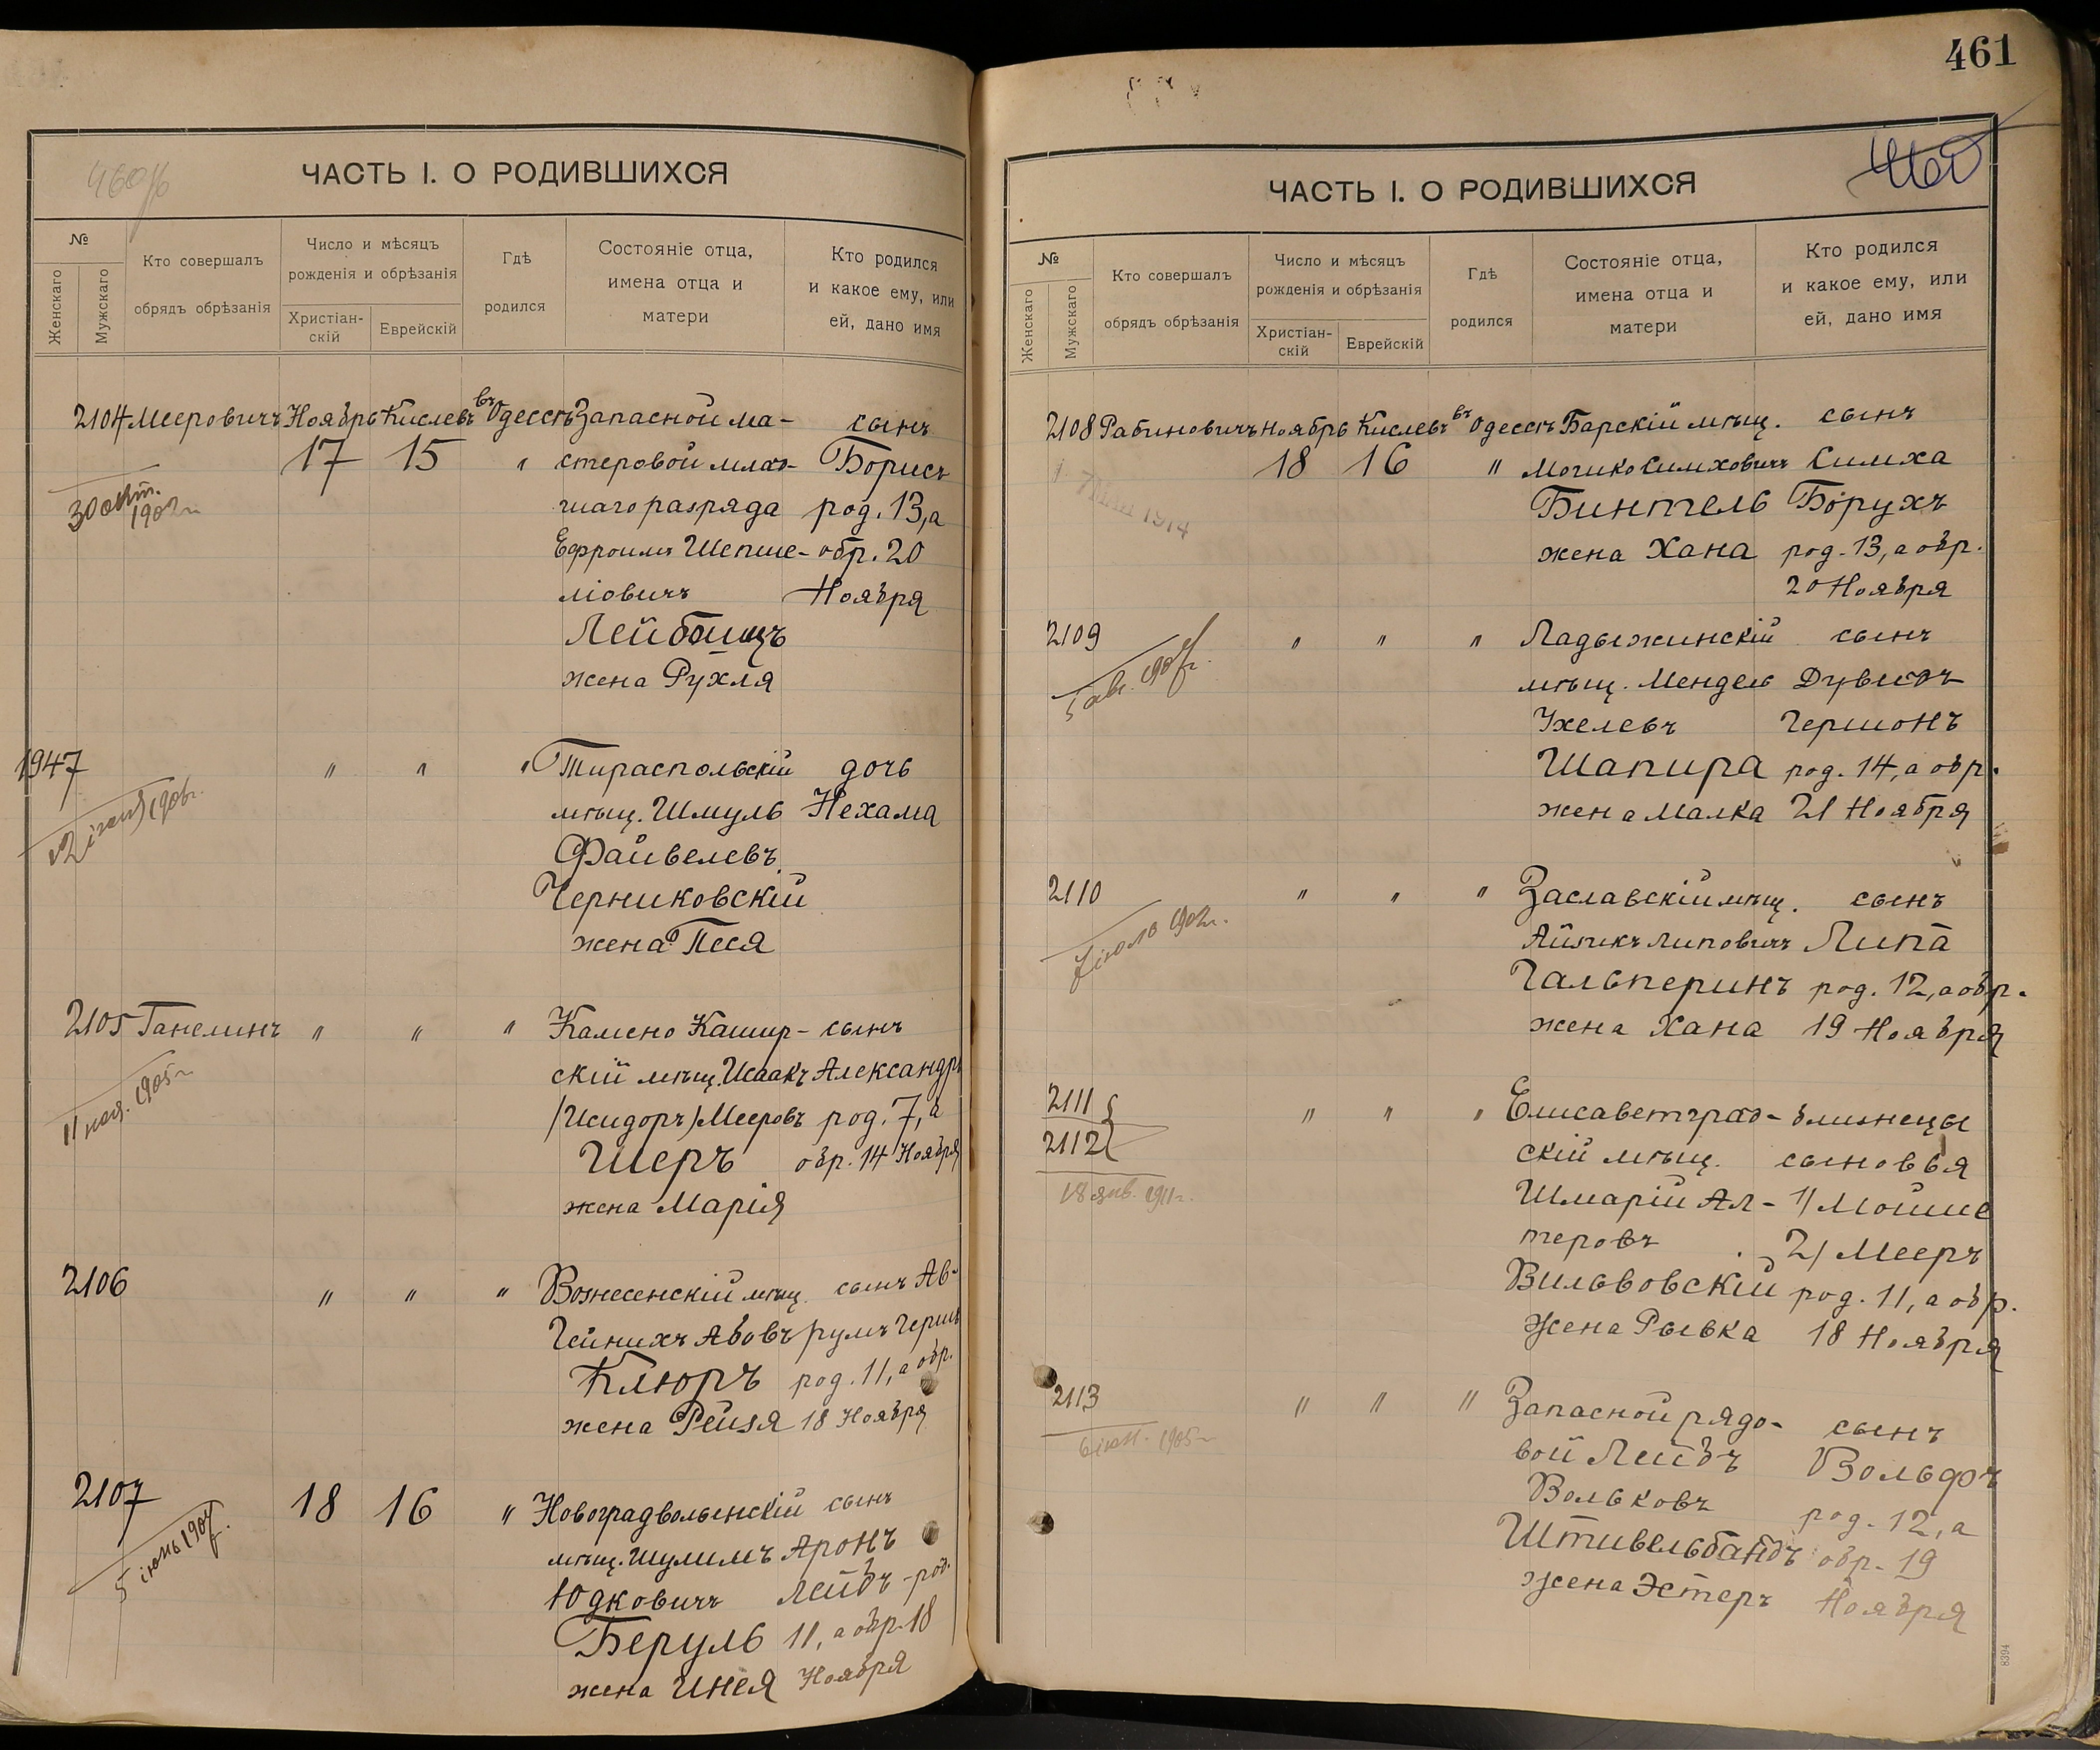 460/б
ЧАСТЬ I. О РОДИВШИХСЯ
№
Женскаго
Мужскаго
Кто совершалъ
обрядъ обрѣзанія
Число и мѣсяцъ
рожденія и обрѣзанія
Христіан-
скій
Еврейскій
Гдѣ
родился
Состояніе отца,
имена отца и
матери
Кто родился
и какое ему, или
ей, дано имя
2104 Мееровичъ Ноябрь Кислевъ въ Одессѣ Запасной ма- сынъ
17 15 " стеровой млад- Борисъ
30 окт. 1902 г. шаго разряда род. 13, а
Ефроимъ Шепше- обр. 20
ліовичъ Ноября
Лейбанцъ
жена Рухля
1947 " " " Тираспольскій дочь
мѣщ. Шмуль Нехама
Файвелевъ
Черниковскій
жена Песя
2105 Ганелинъ " " " Камено Кашир- сынъ
скій мѣщ. Исаакъ Александръ
11 1905 г. /Исидоръ/ Мееровъ род. 7, а
Шеръ обр. 14 Ноября
жена Марія
2106 " " " Вознесенскій мѣщ. сынъ Ав-
Гейнихъ Абовъ румъ Гершъ
Клюръ род. 11, а обр.
жена Рейзя 18 Ноября
2107 18 16 " Новоградволынскій сынъ
мѣщ. Шулимъ Аронъ
5 іюнь Юдковичъ Лейбъ - род.
Беруль 11, а обр. 18
жена Инея Ноября
461
ЧАСТЬ I. О РОДИВШИХСЯ
№
Женскаго
Мужскаго
Кто совершалъ
обрядъ обрѣзанія
Число и мѣсяцъ
рожденія и обрѣзанія
Христіан-
скій
Еврейскій
Гдѣ
родился
Состояніе отца,
имена отца и
матери
Кто родился
и какое ему, или
ей, дано имя
2108 Рабиновичъ Ноябрь Кислевъ въ Одессѣ Барскій мѣщ. сынъ
18 16 " Мошко Симховичъ Симха
1914 Бинтель Борухъ
жена Хана род. 13, а обр.
20 Ноября
2109 " " " Ладыжинскій сынъ
мѣщ. Мендель Дувидъ
Ухелевъ Гершонъ
Шапира род. 14, а обр.
жена Малка 21 Ноября
2110 " " " Заславскій мѣщ. сынъ
7 іюль 1902 г. Айзикъ Липовичъ Липа
Гальперинъ род. 12, а обр.
жена Хана 19 Ноября
2111 " " " Елисаветград- близнецы
2112 скій мѣщ. сыновья
18 янв. 1911 г. Шмарій Ал- 1/ Мойше
теровъ 2/ Мееръ
Вильвовскій род. 11, а обр.
жена Рывка 18 Ноября
2113 " " " Запасной рядо- сынъ
1905 г. вой Лейбъ Вольфъ
Вольковъ род. 12, а
Штивельбандъ обр. 19
жена Эстеръ Ноября
8394